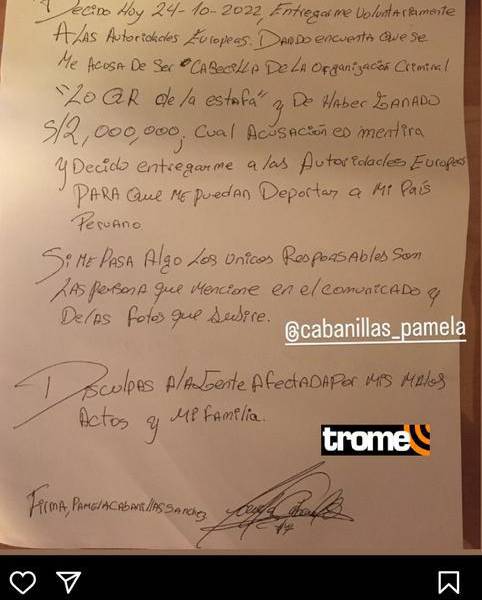 Decido Hoy 24-10-2022, Entregarme Voluntariamente
A Las Autoridades Europeas. Dando encuenta Que se
Me Acusa De Ser "CABECILLA De La Organización Criminal
"LO QR de la estafa" y De Haber GANADO
S/2,000,000, Cual Acusación es mentira
y Decido entregarme a las Autoridades Europeas
PARA Que ME puedan Deportar a Mi País
Peruano.
Si ME PASA Algo Los Unicos Responsables Son
LAS persona que Mencione en el comunicado y
De las fotos que Subire.
@cabanillas_pamela
Disculpas A la Gente Afectada Por Mis Malos
Actos y Mi Familia.
trome
Firma, Pamela Cabanillas Sanchez